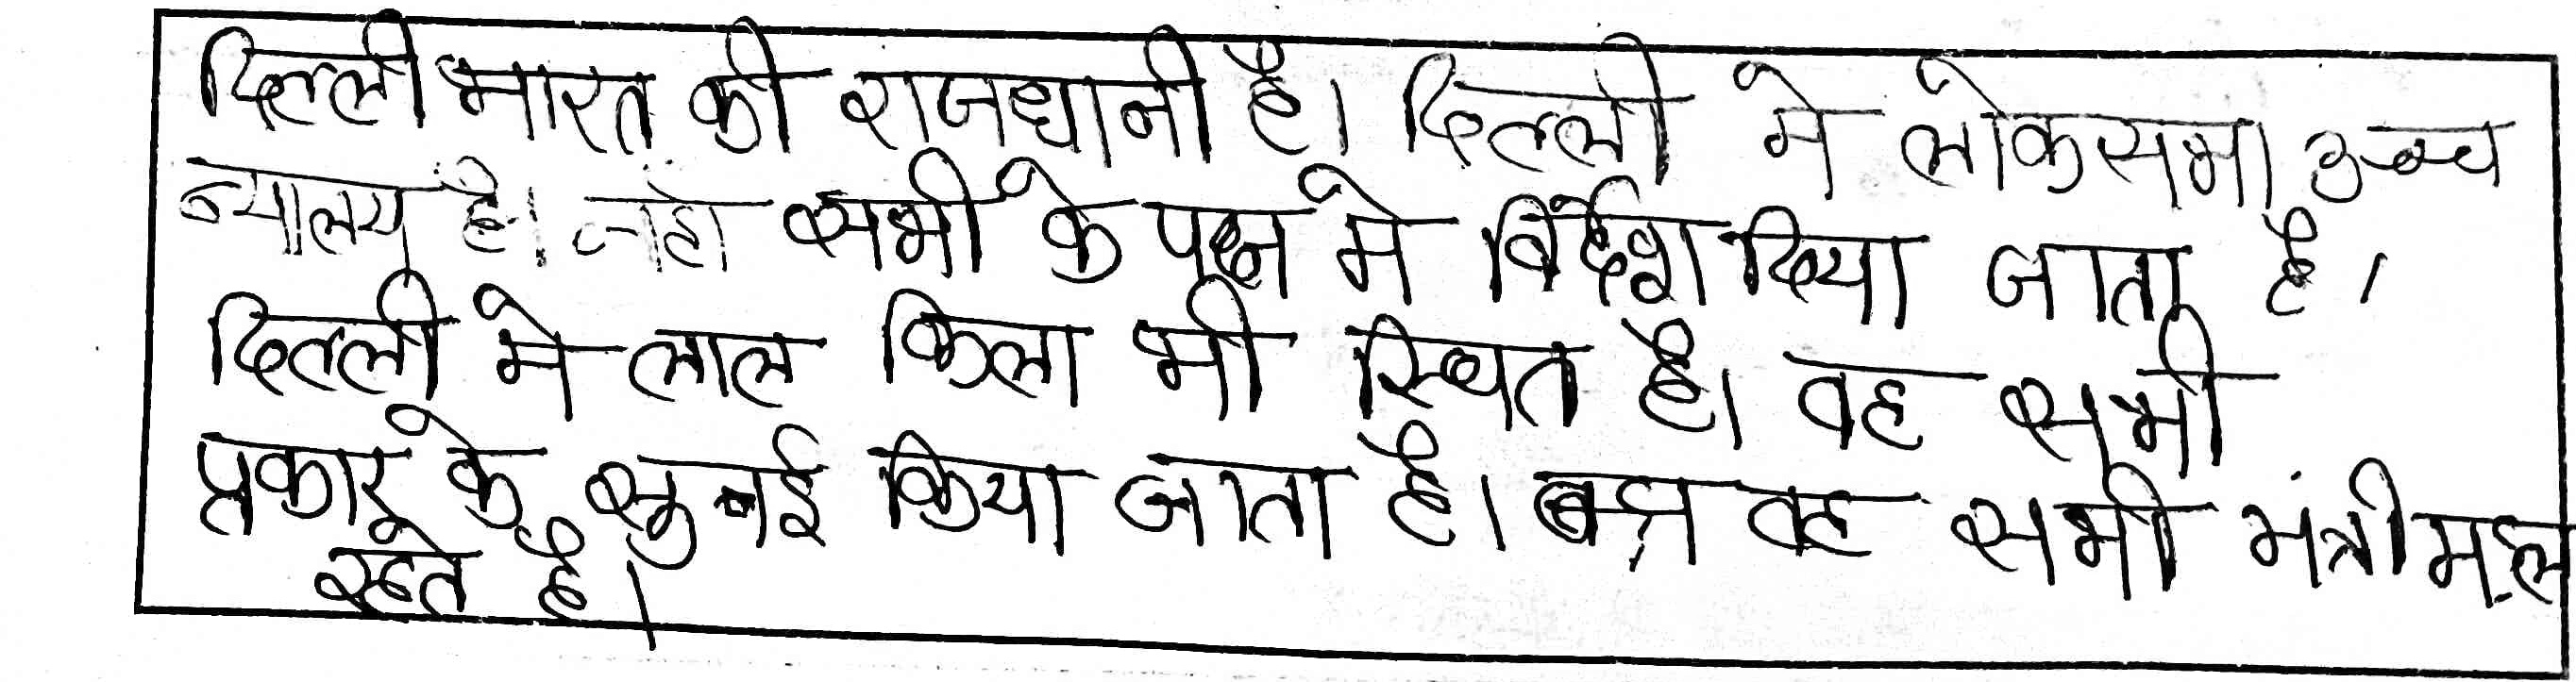 दिल्ली भारत की राजधानी है। दिल्ली मे लोकसभा उच्च
न्यालय है। जहा सभी के पक्ष मे निर्देश दिया जाता है।
दिल्ली मे लाल किला भी स्थित है। वह सभी
प्रकार के सुनई किया जाता है। वह सभी मंत्री
रहते है।